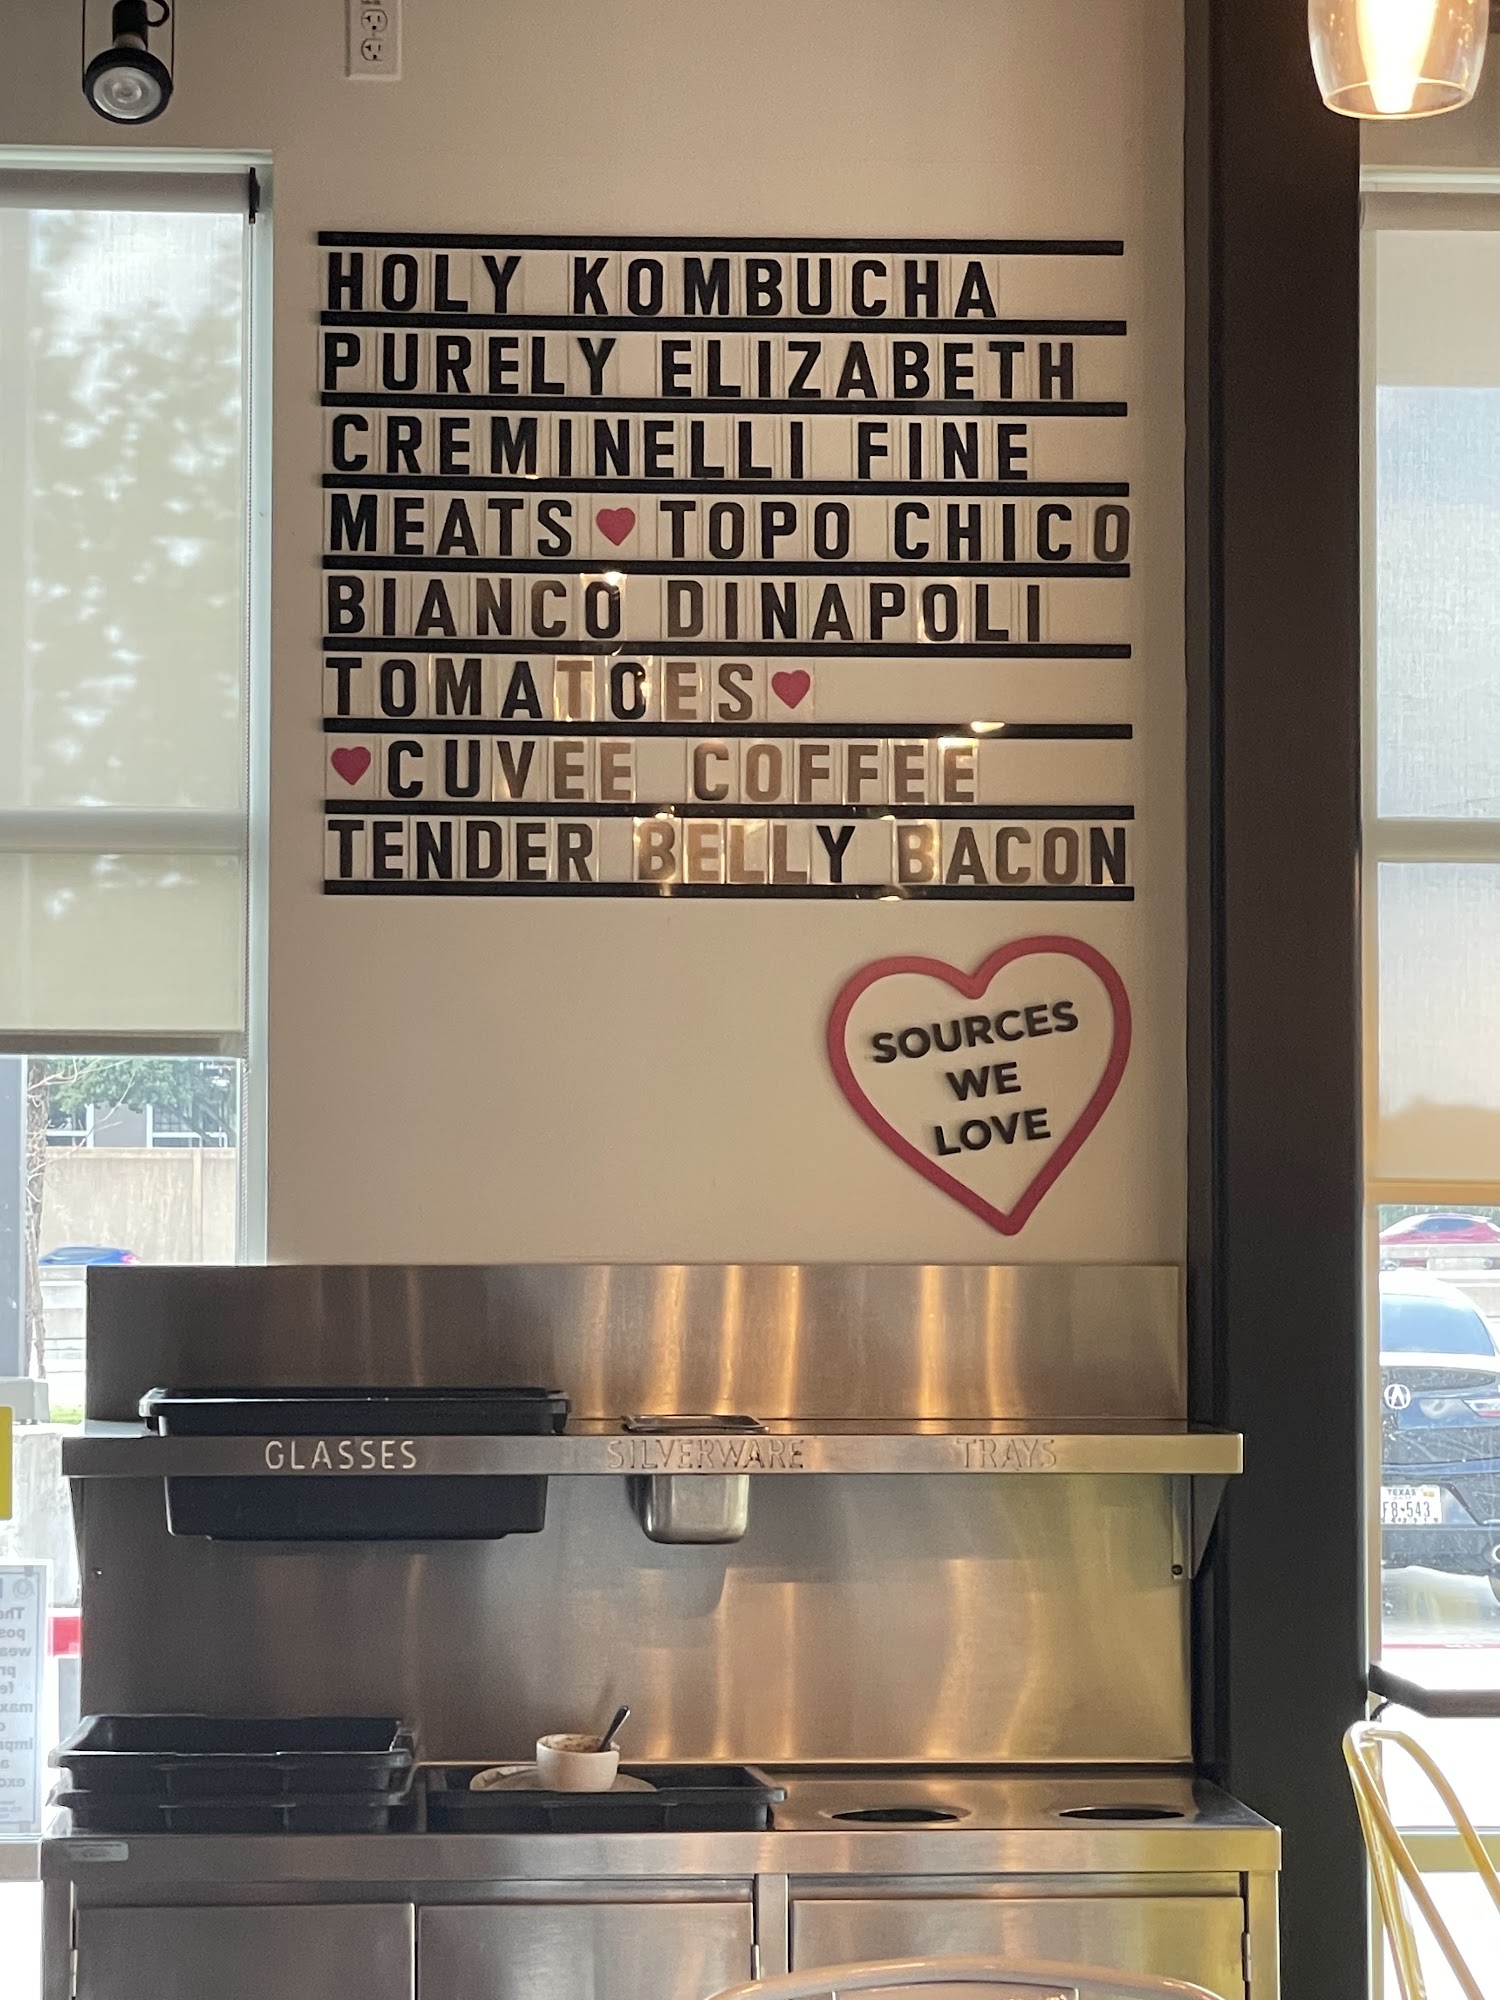 HOLY KOMBUCHA
PURELY ELIZABETH
CREMINELLI FINE
MEATS ♥ TOPO CHICO
BIANCO DINAPOLI
TOMATOES ♥
♥ CUVEE COFFEE
TENDER BELLY BACON
SOURCES
WE
LOVE
GLASSES SILVERWARE TRAYS
TEXAS
F8•543